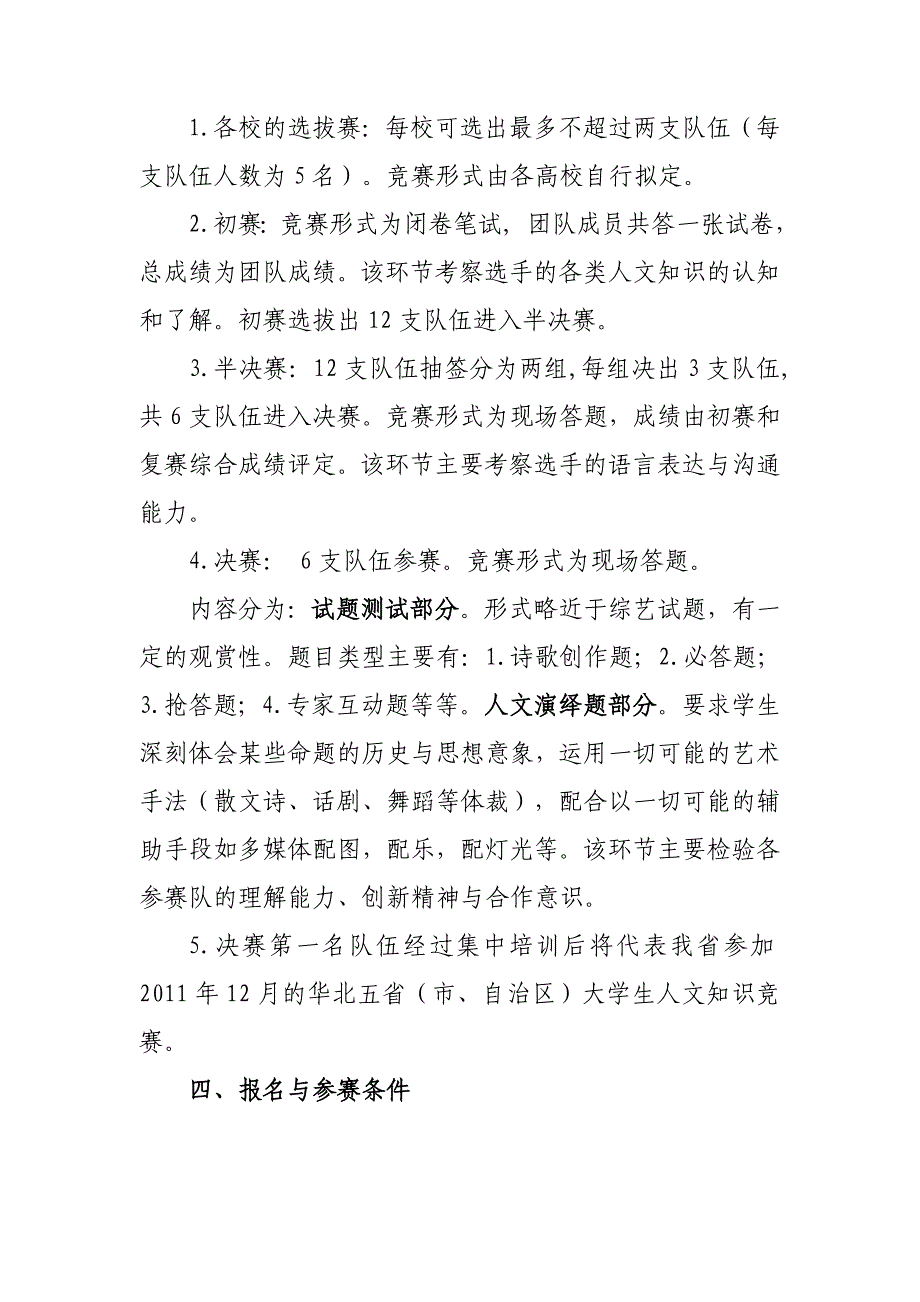 1.各校的选拔赛：每校可选出最多不超过两支队伍（每
支队伍人数为 5 名）。竞赛形式由各高校自行拟定。
2.初赛：竞赛形式为闭卷笔试，团队成员共答一张试卷，
总成绩为团队成绩。该环节考察选手的各类人文知识的认知
和了解。初赛选拔出 12 支队伍进入半决赛。
3.半决赛：12 支队伍抽签分为两组,每组决出 3 支队伍，
共 6 支队伍进入决赛。竞赛形式为现场答题，成绩由初赛和
复赛综合成绩评定。该环节主要考察选手的语言表达与沟通
能力。
4.决赛： 6 支队伍参赛。竞赛形式为现场答题。
内容分为：试题测试部分。形式略近于综艺试题，有一
定的观赏性。题目类型主要有：1.诗歌创作题；2.必答题；
3.抢答题；4.专家互动题等等。人文演绎题部分。要求学生
深刻体会某些命题的历史与思想意象，运用一切可能的艺术
手法（散文诗、话剧、舞蹈等体裁），配合以一切可能的辅
助手段如多媒体配图，配乐，配灯光等。该环节主要检验各
参赛队的理解能力、创新精神与合作意识。
5.决赛第一名队伍经过集中培训后将代表我省参加
2011 年 12 月的华北五省（市、自治区）大学生人文知识竞
赛。
四、报名与参赛条件